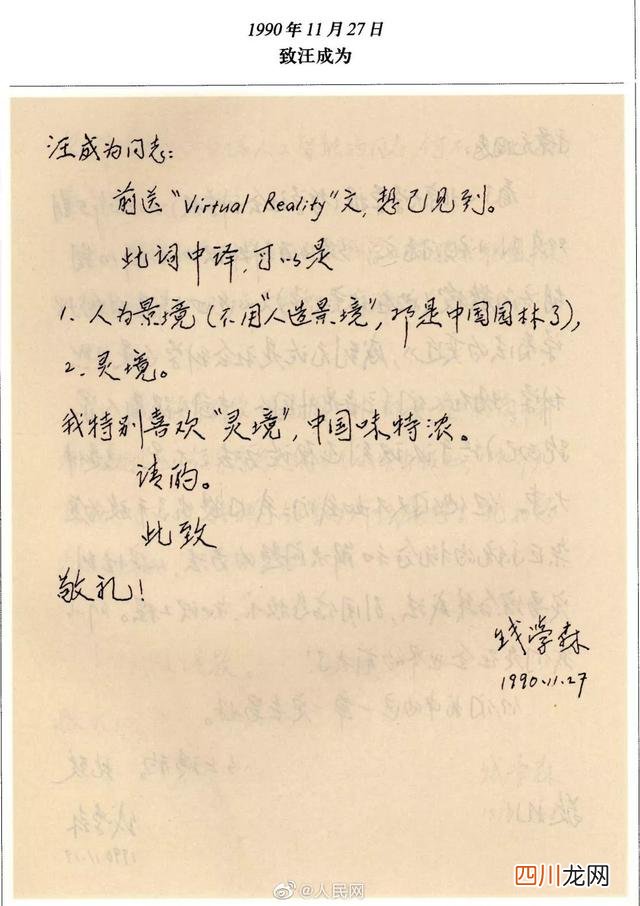 1990年11月27日
致汪成为
汪成为同志：
前送“Virtual Reality”文，想已见到。
此词中译，可以是
1. 人为景境（不用“人造景境”，那是中国园林了），
2. 灵境。
我特别喜欢“灵境”，中国味特浓。
请酌。
此致
敬礼！
钱学森
1990.11.27
@人民网
四川龙网